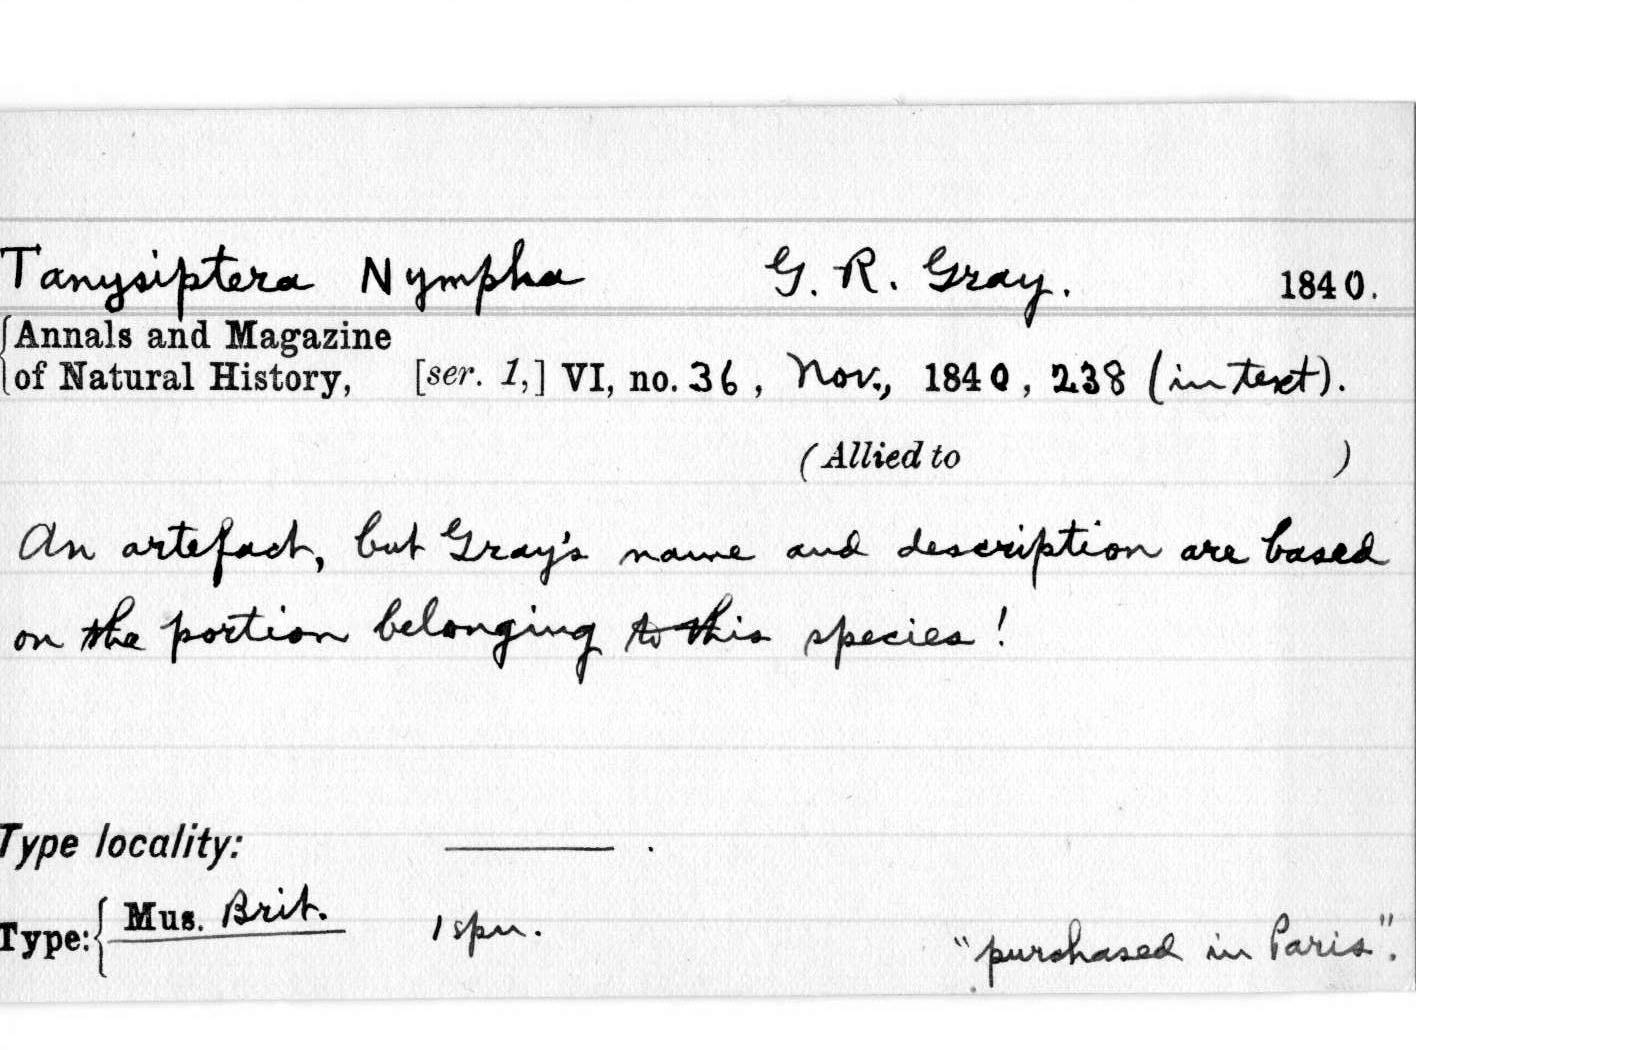 Tanysiptera Nympha G. R. Gray. 1840.
{Annals and Magazine
of Natural History, [ser. 1,] VI, no. 36, Nov., 1840, 238 (in text).
(Allied to )
An artefact, but Gray's name and description are based
on the portion belonging to this species!
Type locality: ———.
Type: { Mus. Brit. 1 spn. "purchased in Paris".